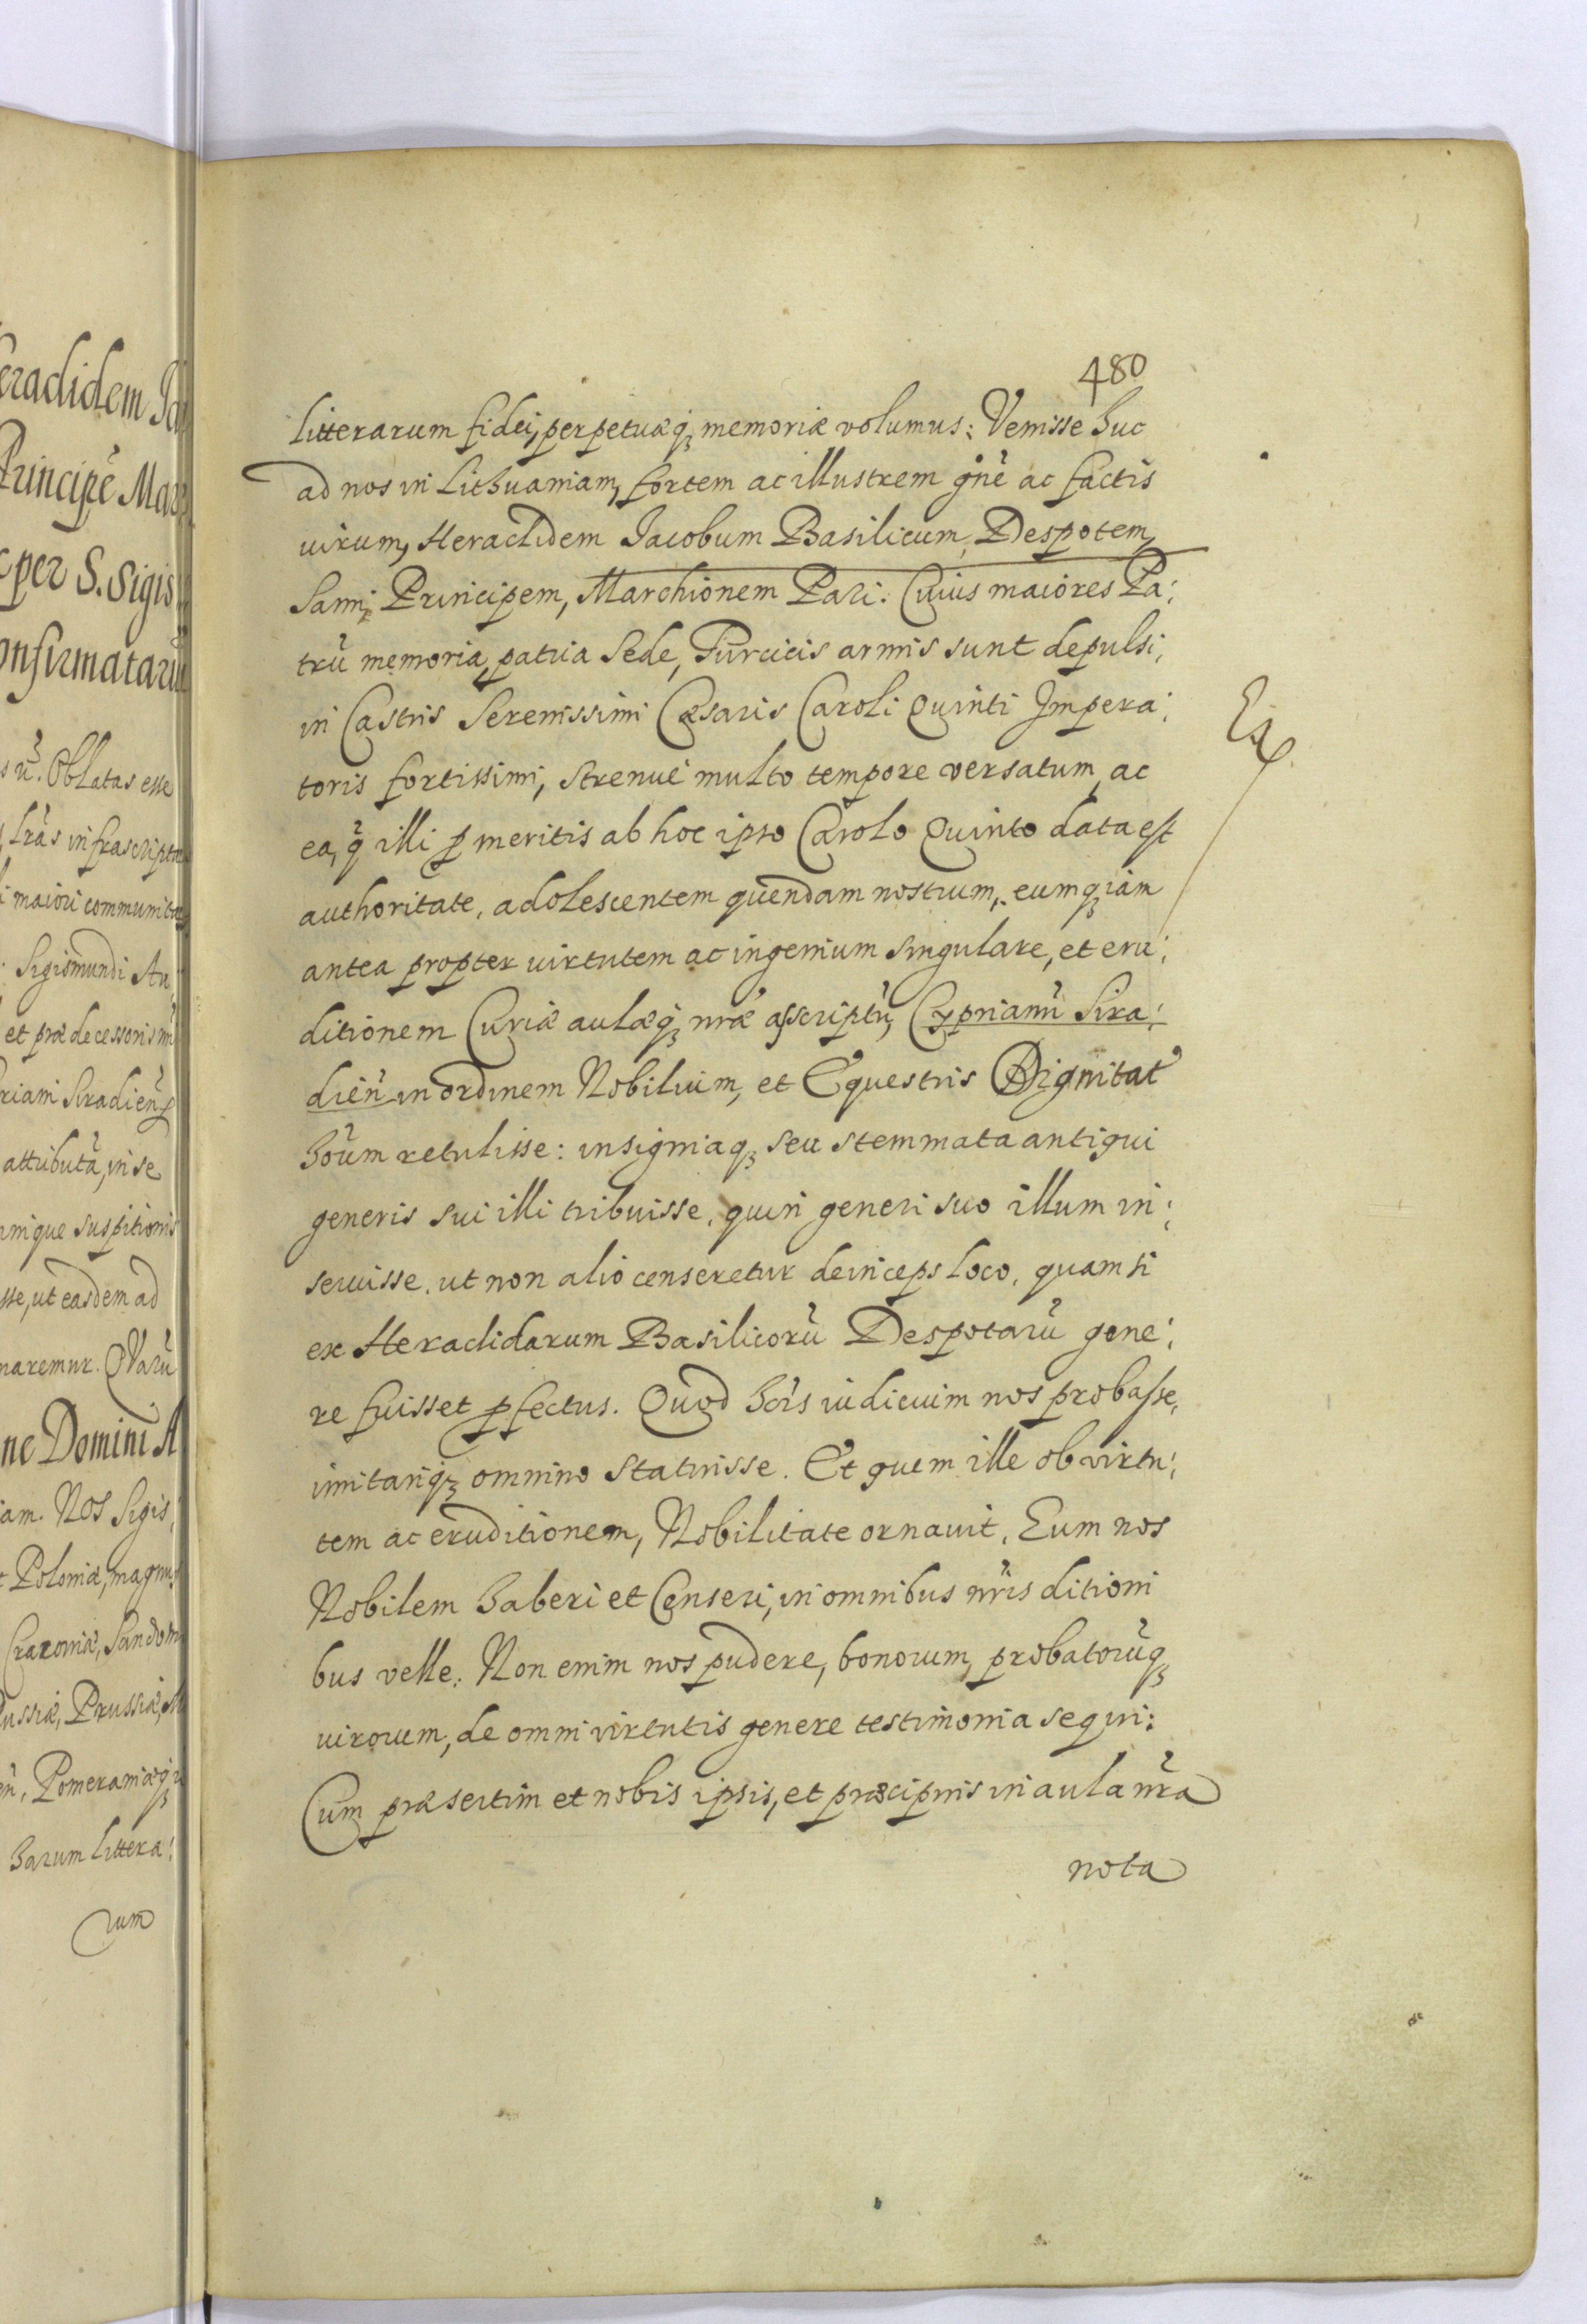 eradidem Ja
Principē Mar
per S. Sigis
onfirmatarū
ū. Oblatas esse
lr̃as infrascript
i maiori communit
Sigismundi Au
et prædecessoris nr̃i
riani Siradien̄
attributā, in se
omnique suspitionis
sse, ut easdem ad
naremur. Qvarū
ne Domini A
iam. Nos Sigis:
Poloniæ, magnus
Cracoviæ, Sandom
ussiæ, Prussiæ, M
en̄, Pomeraniæq
harum littera:
rum
480
litterarum fidei, perpetuæq; memoriæ volumus: Venisse huc
ad nos in Lithuaniam, fortem ac illustrem gn̄e ac factis
virum, Heraclidem Jacobum Basilicum, Despotem,
Sami, Principem, Marchionem Pari. Cuius maiores Pa:
trū memoria, patria Sede, Turcicis armis sunt depulsi,
in Castris Serenissimi Cæsaris Caroli Quinti Impera:
toris fortissimi, strenuè multo tempore versatum, ac
ea, q̄ illi p meritis ab hoc ipso Carolo Quinto data est
authoritate, adolescentem quendam nostrum, eumq; iam
antea propter virtutem ac ingenium singulare, et eru:
ditionem Curiæ aulæq; nr̃æ asscriptū, Cyprianū Sira:
dien̄ in ordinem Nobilium, et Equestris Dignitat
hoīum retulisse: insigniaq; seu stemmata antiqui
generis sui illi tribuisse, quin generi suo illum in:
seruisse, ut non alio censeretur deinceps loco, quam si
ex Heraclidarum Basilicorū Despotarū gene:
re fuisset pfectus. Quod hōis iudicium nos probasse,
imitariq; omnino statuisse. Et quem ille ob virtu:
tem ac eruditionem, Nobilitate ornavit, Eum nos
Nobilem haberi et Censeri, in omnibus nr̃is ditioni
bus velle. Non enim nos pudere, bonorum, probatorūq;
virorum, de omni virtutis genere testimonia sequi:
Cum præsertim et nobis ipsis, et præcipuis in aula nr̃a
nota